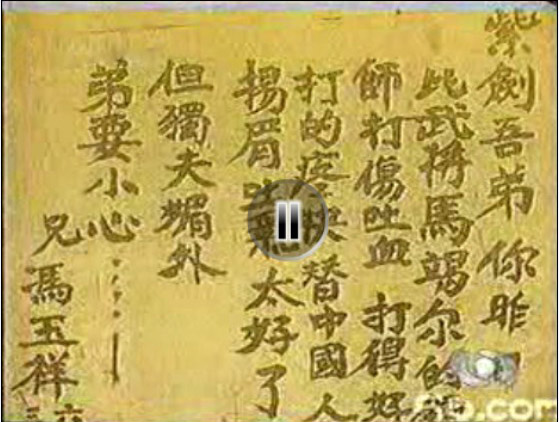 紫劍吾弟 你昨
比武馬竭尔的
師打傷吐血 打得好
打的替中國人
揚眉太好了
但獨夫媚外
弟要小心......
兄 馮玉祥
.com